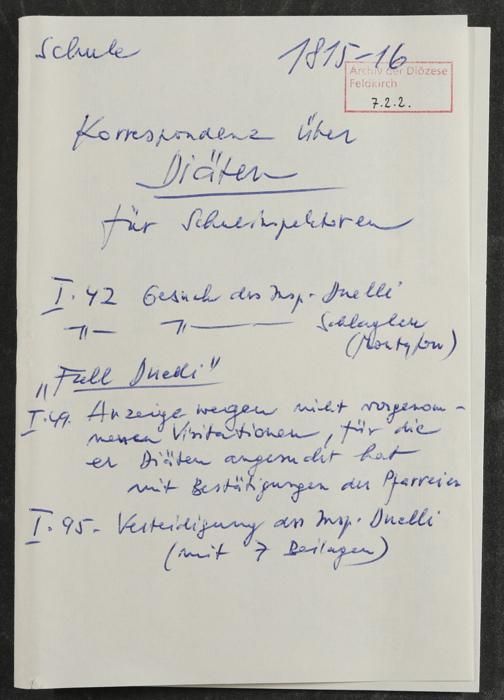 Schule
1815-16
Archiv der Diözese
Feldkirch
7.2.2.
Korrespondenz über
Diäten
für Schulinspektoren
I. 42 Gesuch des Insp. Duelli
-"- -"- Schlagler
(Montafon)
"Fall Duelli"
I.49. Anzeige wegen nicht vorgenom-
menen Visitationen, für die
er Diäten angesucht hat
mit Bestätigungen der Pfarreien
I. 95- Verteidigung des Insp. Duelli
(mit 7 Beilagen)